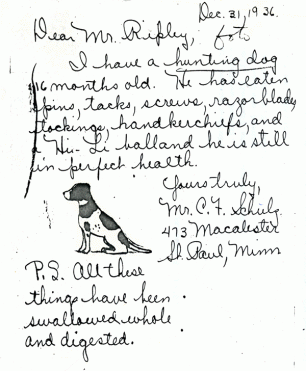 Dec. 31, 1936.
Dear Mr. Ripley,
I have a hunting dog
16 months old. He has eaten
pins, tacks, screws, razor blades,
stockings, handkerchiefs, and
a Hi-Li ball and he is still
in perfect health.
Yours truly,
Mr. C. F. Schulz
473 Macalester
St. Paul, Minn
P.S. All these
things have been
swallowed whole
and digested.